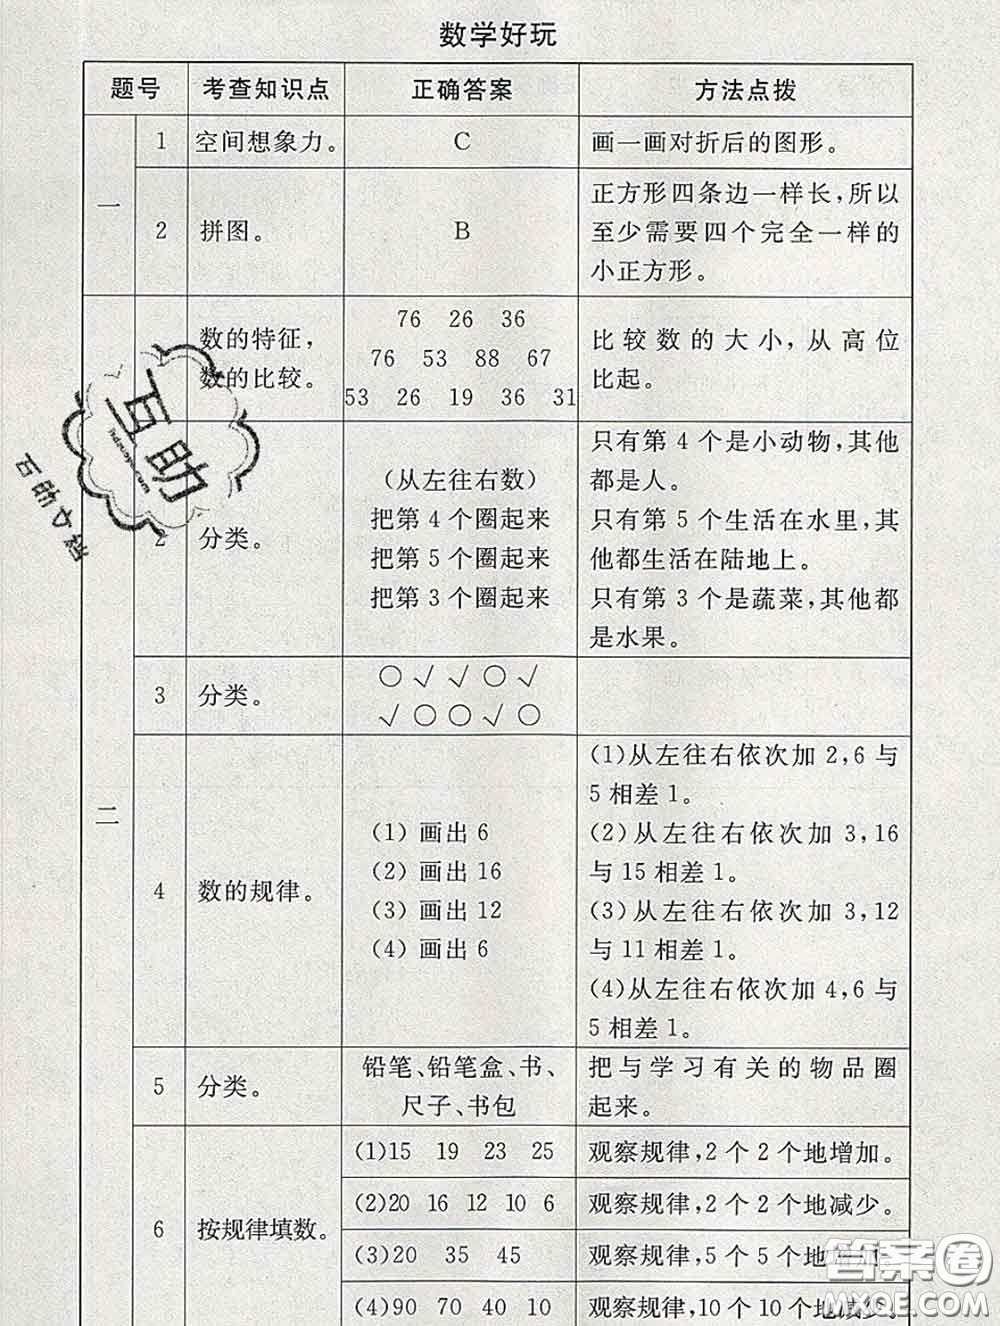 数学好玩
题号 考查知识点 正确答案 方法点拨
一
1 空间想象力。 C 画一画对折后的图形。
2 拼图。 B 正方形四条边一样长,所以
至少需要四个完全一样的
小正方形。
二
数的特征,
数的比较。
76 26 36
76 53 88 67
53 26 19 36 31
比较数的大小,从高位
比起。
2 分类。
(从左往右数)
把第 4 个圈起来
把第 5 个圈起来
把第 3 个圈起来
只有第 4 个是小动物,其他
都是人。
只有第 5 个生活在水里,其
他都生活在陆地上。
只有第 3 个是蔬菜,其他都
是水果。
3 分类。
○√√○√
√○○√○
4 数的规律。
(1) 画出 6
(2) 画出 16
(3) 画出 12
(4) 画出 6
(1)从左往右依次加 2,6 与
5 相差 1。
(2)从左往右依次加 3,16
与 15 相差 1。
(3)从左往右依次加 3,12
与 11 相差 1。
(4)从左往右依次加 4,6 与
5 相差 1。
5 分类。
铅笔、铅笔盒、书、
尺子、书包
把与学习有关的物品圈
起来。
6 按规律填数。
(1)15 19 23 25 观察规律,2 个 2 个地增加。
(2)20 16 12 10 6 观察规律,2 个 2 个地减少。
(3)20 35 45 观察规律,5 个 5 个地
(4)90 70 40 10 观察规律,10 个 10 个地减少。
互助
答案圈